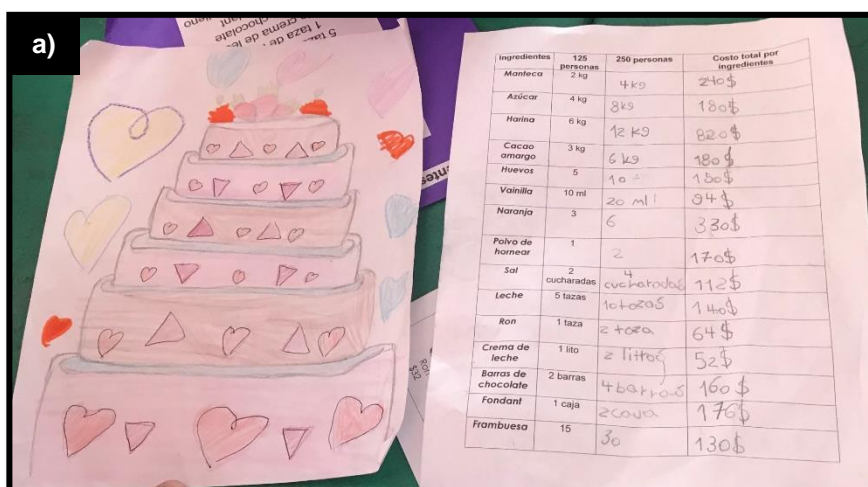 a)
5 taza
1 taza de
crema de le
chocolate
ndant
lleno
Ingredientes 125 personas 250 personas Costo total por ingredientes
Manteca 2 kg 4 kg 240$
Azúcar 4 kg 8 kg 180$
Harina 6 kg 12 kg 820$
Cacao amargo 3 kg 6 kg 180$
Huevos 5 10 180$
Vainilla 10 ml 20 ml 94$
Naranja 3 6 330$
Polvo de hornear 1 2 170$
Sal 2 cucharadas 4 cucharadas 112$
Leche 5 tazas 10 tazas 140$
Ron 1 taza 2 taza 64$
Crema de leche 1 lito 2 littos 52$
Barras de chocolate 2 barras 4 barras 160$
Fondant 1 caja 2 caja 176$
Frambuesa 15 30 130$
Ron
$32